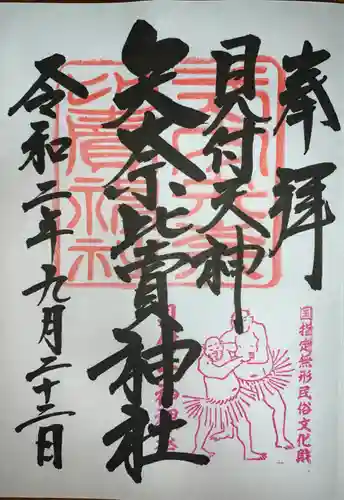 奉拝
見付天神
矢奈比賣神社
令和二年九月二十二日
矢奈比賣神社
国指定無形民俗文化財